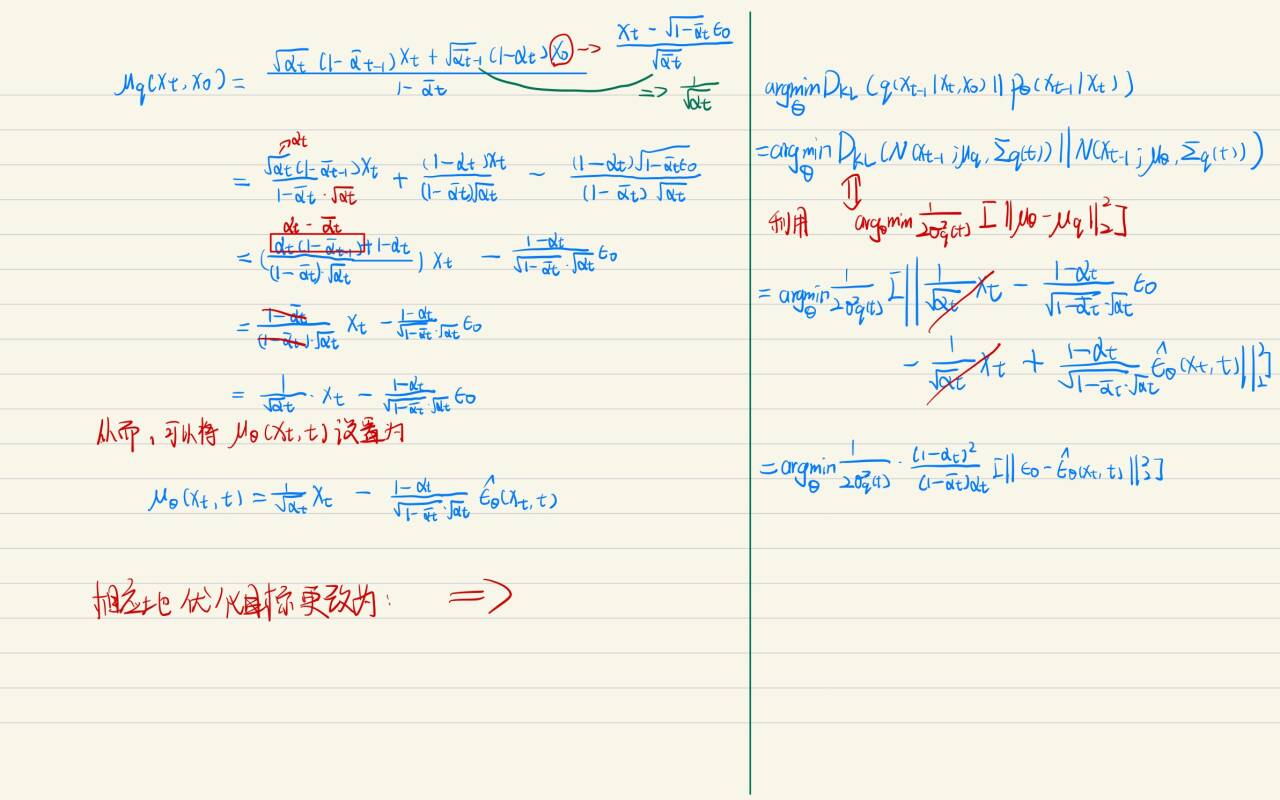 μq(xt, x0) = \frac{\sqrt{αt} (1-\bar{α}t-1) xt + \sqrt{\bar{α}t-1} (1-αt) x0}{1-\bar{α}t} -> \frac{xt - \sqrt{1-\bar{α}t} ε0}{\sqrt{\bar{α}t}}
=> \frac{1}{\sqrt{αt}}
↗ αt
= \frac{\sqrt{αt} (1-\bar{α}t-1) xt}{1-\bar{α}t · \sqrt{αt}} + \frac{(1-αt) xt}{(1-\bar{α}t)\sqrt{αt}} - \frac{(1-αt)\sqrt{1-\bar{α}t} ε0}{(1-\bar{α}t) \sqrt{αt}}
αt - \bar{α}t
= (\frac{αt(1-\bar{α}t-1) + 1-αt}{(1-\bar{α}t)·\sqrt{αt}}) xt - \frac{1-αt}{\sqrt{1-\bar{α}t}·\sqrt{αt}} ε0
= \frac{1-\bar{α}t}{(1-\bar{α}t)·\sqrt{αt}} xt - \frac{1-αt}{\sqrt{1-\bar{α}t}·\sqrt{αt}} ε0
= \frac{1}{\sqrt{αt}} · xt - \frac{1-αt}{\sqrt{1-\bar{α}t}·\sqrt{αt}} ε0
从而，可以将 μθ(xt, t) 设置为
μθ(xt, t) = \frac{1}{\sqrt{αt}} xt - \frac{1-αt}{\sqrt{1-\bar{α}t}·\sqrt{αt}} \hat{ε}θ(xt, t)
相应地优化目标更改为： =>
argmin θ DKL (q(xt-1|xt,x0) || pθ(xt-1|xt))
= argmin θ DKL (N(xt-1; μq, Σq(t)) || N(xt-1; μθ, Σq(t)))
利用 argθmin \frac{1}{2σ²q(t)} [||μθ - μq||²2]
= argmin θ \frac{1}{2σ²q(t)} [||\frac{1}{\sqrt{αt}} xt - \frac{1-αt}{\sqrt{1-\bar{α}t}·\sqrt{αt}} ε0
- \frac{1}{\sqrt{αt}} xt + \frac{1-αt}{\sqrt{1-\bar{α}t}·\sqrt{αt}} \hat{ε}θ(xt, t)||²2]
= argmin θ \frac{1}{2σ²q(t)} · \frac{(1-αt)²}{(1-\bar{α}t)αt} [||ε0 - \hat{ε}θ(xt, t)||²2]